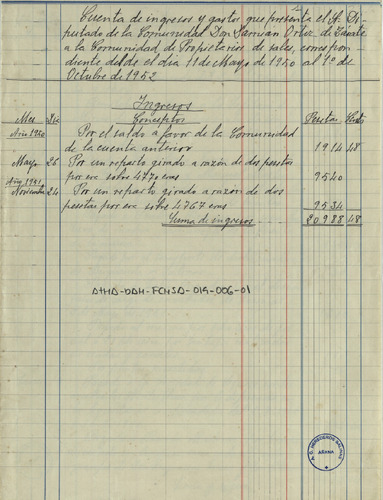 Cuenta de ingresos y gastos que presenta el Sr. Di-
putado de la Comunidad Don Damian Ortiz de Zárate
a la Comunidad de Propietarios de sales, correspon-
diente desde el día 11 de Mayo de 1950 al 1º de
Octubre de 1952
Ingresos
Mes Día Conceptos Pesetas Cts
Año 1950 Por el saldo a favor de la Comunidad
de la cuenta anterior 1914 48
Mayo 26 Por un reparto girado a razón de dos pesetas
por era sobre 4770 eras 9540
Año 1951
Noviembre 24 Por un reparto girado a razon de dos
pesetas por era sobre 4767 eras 9534
Suma de ingresos 20988 48
ATHA-DAH-FCHSA-019-006-01
AÑANA